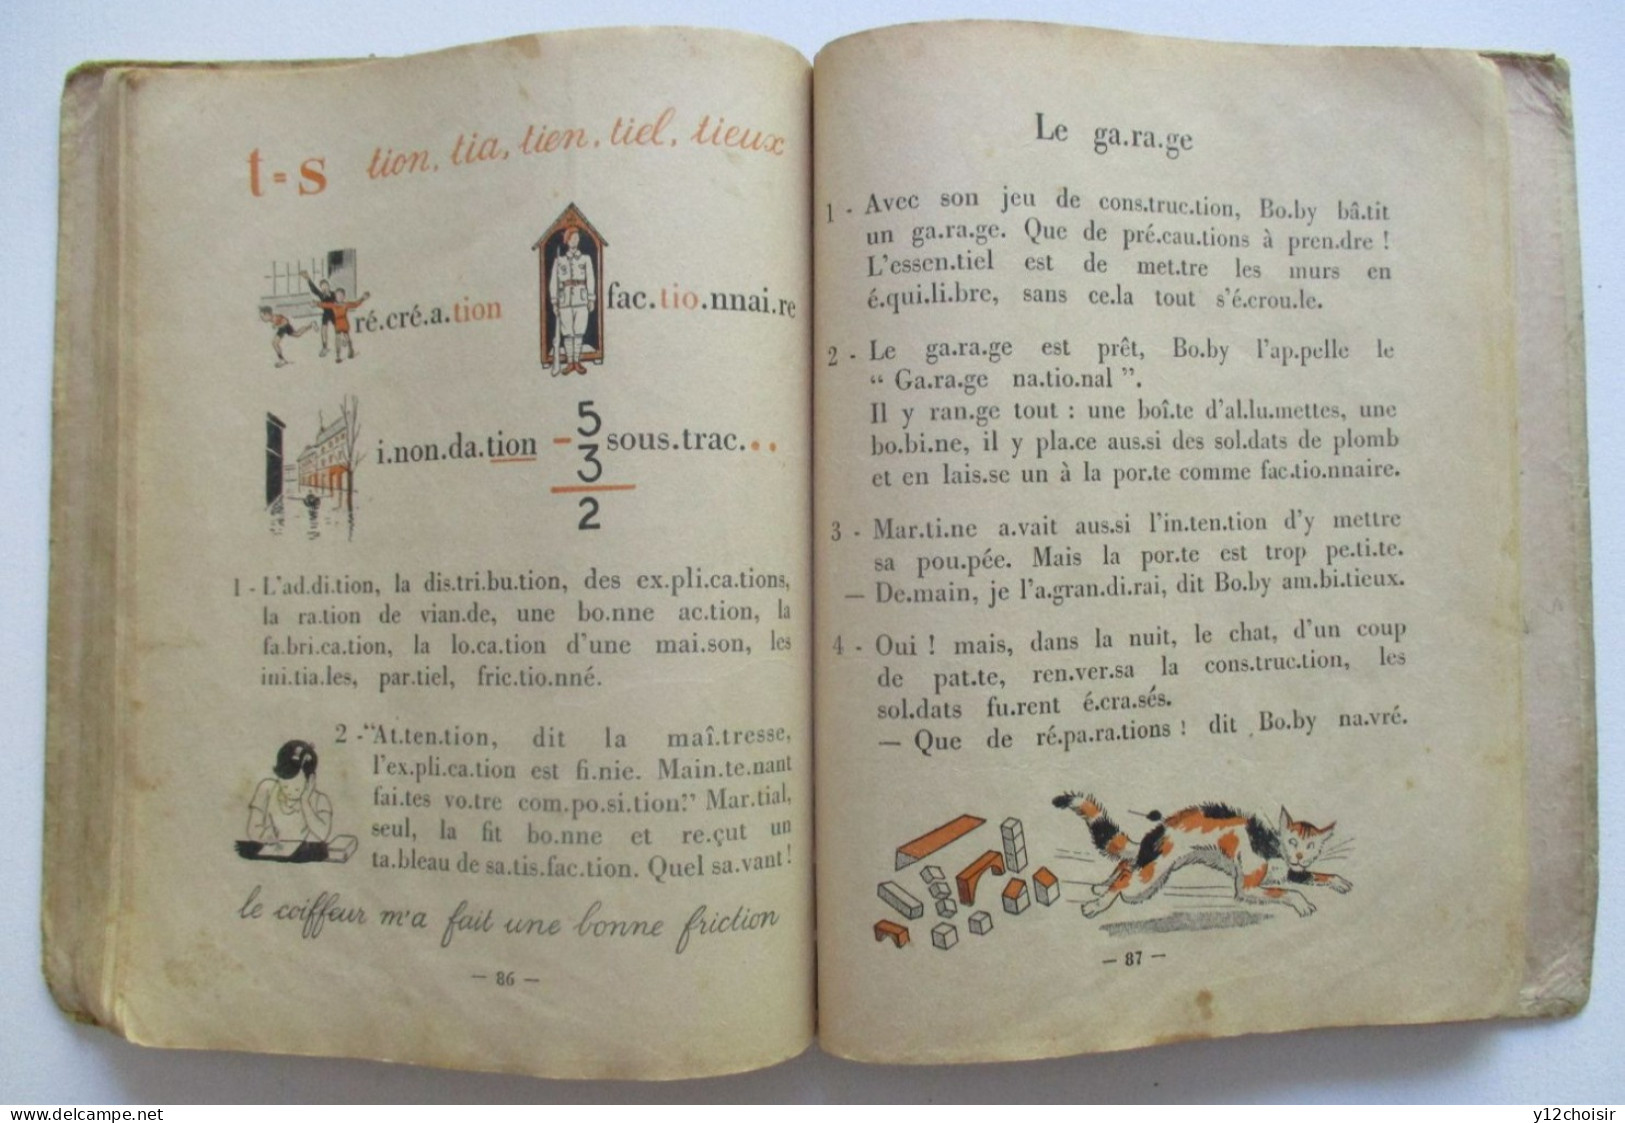 t = s tion, tia, tien, tiel, tieux
ré.cré.a.tion
fac.tio.nnai.re
i.non.da.tion
- 5
3
2
sous.trac. . .
1 - L'ad.di.tion, la dis.tri.bu.tion, des ex.pli.ca.tions,
la ra.tion de vian.de, une bo.nne ac.tion, la
fa.bri.ca.tion, la lo.ca.tion d'une mai.son, les
ini.tia.les, par.tiel, fric.tio.nné.
2 - "At.ten.tion, dit la maî.tresse,
l'ex.pli.ca.tion est fi.nie. Main.te.nant
fai.tes vo.tre com.po.si.tion." Mar.tial,
seul, la fit bo.nne et re.çut un
ta.bleau de sa.tis.fac.tion. Quel sa.vant !
le coiffeur m'a fait une bonne friction
— 86 —
Le ga.ra.ge
1 - Avec son jeu de cons.truc.tion, Bo.by bâ.tit
un ga.ra.ge. Que de pré.cau.tions à pren.dre !
L'essen.tiel est de met.tre les murs en
é.qui.li.bre, sans ce.la tout s'é.crou.le.
2 - Le ga.ra.ge est prêt, Bo.by l'ap.pelle le
“ Ga.ra.ge na.tio.nal ”.
Il y ran.ge tout : une boî.te d'al.lu.mettes, une
bo.bi.ne, il y pla.ce aus.si des sol.dats de plomb
et en lais.se un à la por.te comme fac.tio.nnaire.
3 - Mar.ti.ne a.vait aus.si l'in.ten.tion d'y mettre
sa pou.pée. Mais la por.te est trop pe.ti.te.
— De.main, je l'a.gran.di.rai, dit Bo.by am.bi.tieux.
4 - Oui ! mais, dans la nuit, le chat, d'un coup
de pat.te, ren.ver.sa la cons.truc.tion, les
sol.dats fu.rent é.cra.sés.
— Que de ré.pa.ra.tions ! dit Bo.by na.vré.
— 87 —
delcampe.net
y12choisir